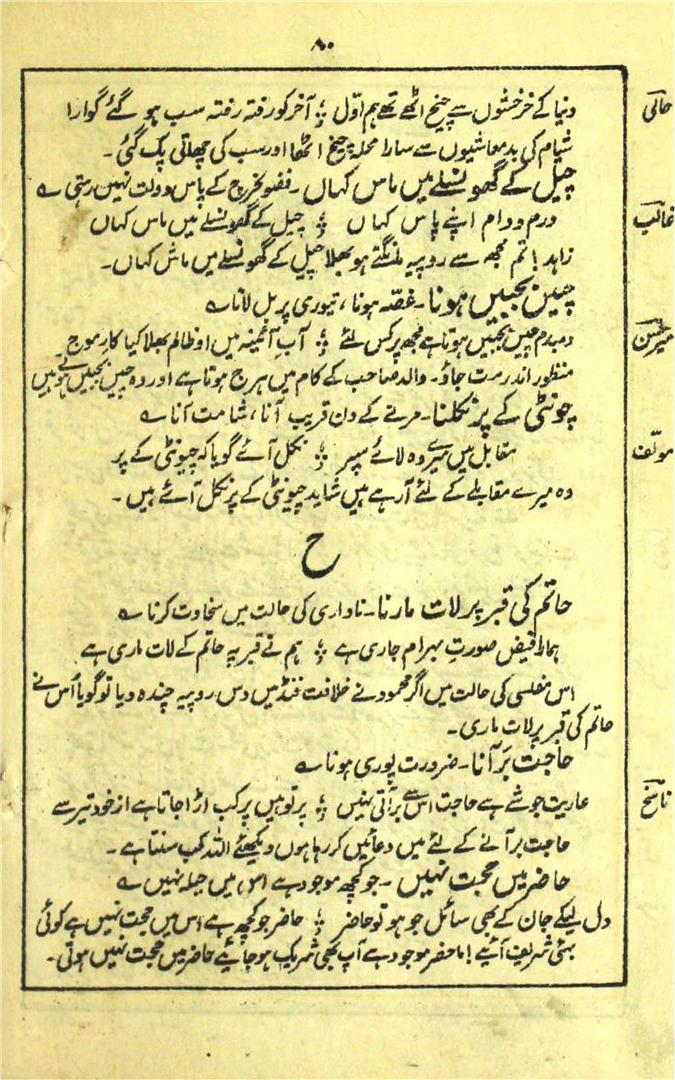 ۸۰
حالی
دنیا کے خرخشوں سے چیخ اٹھے تھے ہم اوّل ؛ آخر کو رفتہ رفتہ سب ہو گئے گوارا
شیام کی بدمعاشیوں سے سارا محلہ چیخ اٹھا اور سب کی چھاتی پک گئی۔
چیل کے گھونسلے میں ماس کہاں۔ فضول خرچ کے پاس دولت نہیں رہتی ؎
غالب
درم و دام اپنے پاس کہاں ؛ چیل کے گھونسلے میں ماس کہاں
زاہد! تم مجھ سے روپیہ مانگتے ہو بھلا چیل کے گھونسلے میں ماس کہاں۔
چیں بجبیں ہونا۔ غصّہ ہونا، تیوری پر بل لانا ؎
میر حسن
دمبدم چیں بجبیں ہوتا ہے مجھ پر کس لئے ؛ آبِ آئینہ میں او ظالم بھلا کیا کارِ موج
منظور اندر مت جاؤ۔ والد صاحب کے کام میں ہرج ہوتا ہے اور وہ چیں بجبیں ہوتے ہیں
چونٹی کے پر نکلنا۔ مرنے کے دن قریب آنا، شامت آنا ؎
مولف
مقابل میں میرے وہ لائے سپر ؛ نکل آئے گویا کہ چیونٹی کے پر
وہ میرے مقابلے کے لئے آرہے ہیں شاید چیونٹی کے پر نکل آئے ہیں۔
ح
حاتم کی قبر پر لات مارنا۔ ناداری کی حالت میں سخاوت کرنا ؎
ہمارا فیض صورتِ بہرام جاری ہے ؛ ہم نے قبر پہ حاتم کے لات ماری ہے
اس مفلسی کی حالت میں اگر محمود نے خلافت فنڈ میں دس روپیہ چندہ دیا تو گویا اُس نے
حاتم کی قبر پر لات ماری۔
حاجت بَر آنا۔ ضرورت پوری ہونا ؎
ناسخ
عاریت جو شے ہے حاجت اس سے بر آتی نہیں ؛ پر تو ہیں پر کب اڑا جاتا ہے از خود تیر سے
حاجت بر آنے کے لئے میں دعائیں کر رہا ہوں دیکھئے اللہ کب سنتا ہے۔
حاضر میں حجت نہیں۔ جو کچھ موجود ہے اس میں حیلہ نہیں ؎
دل لیکے جان کے بھی سائل جو ہو تو حاضر ؛ حاضر جو کچھ ہے اس میں حجت نہیں ہے کوئی
بھئی شریف آئیے! ماحضر موجود ہے آپ بھی شریک ہو جائیے حاضر میں حجت نہیں ہوتی۔